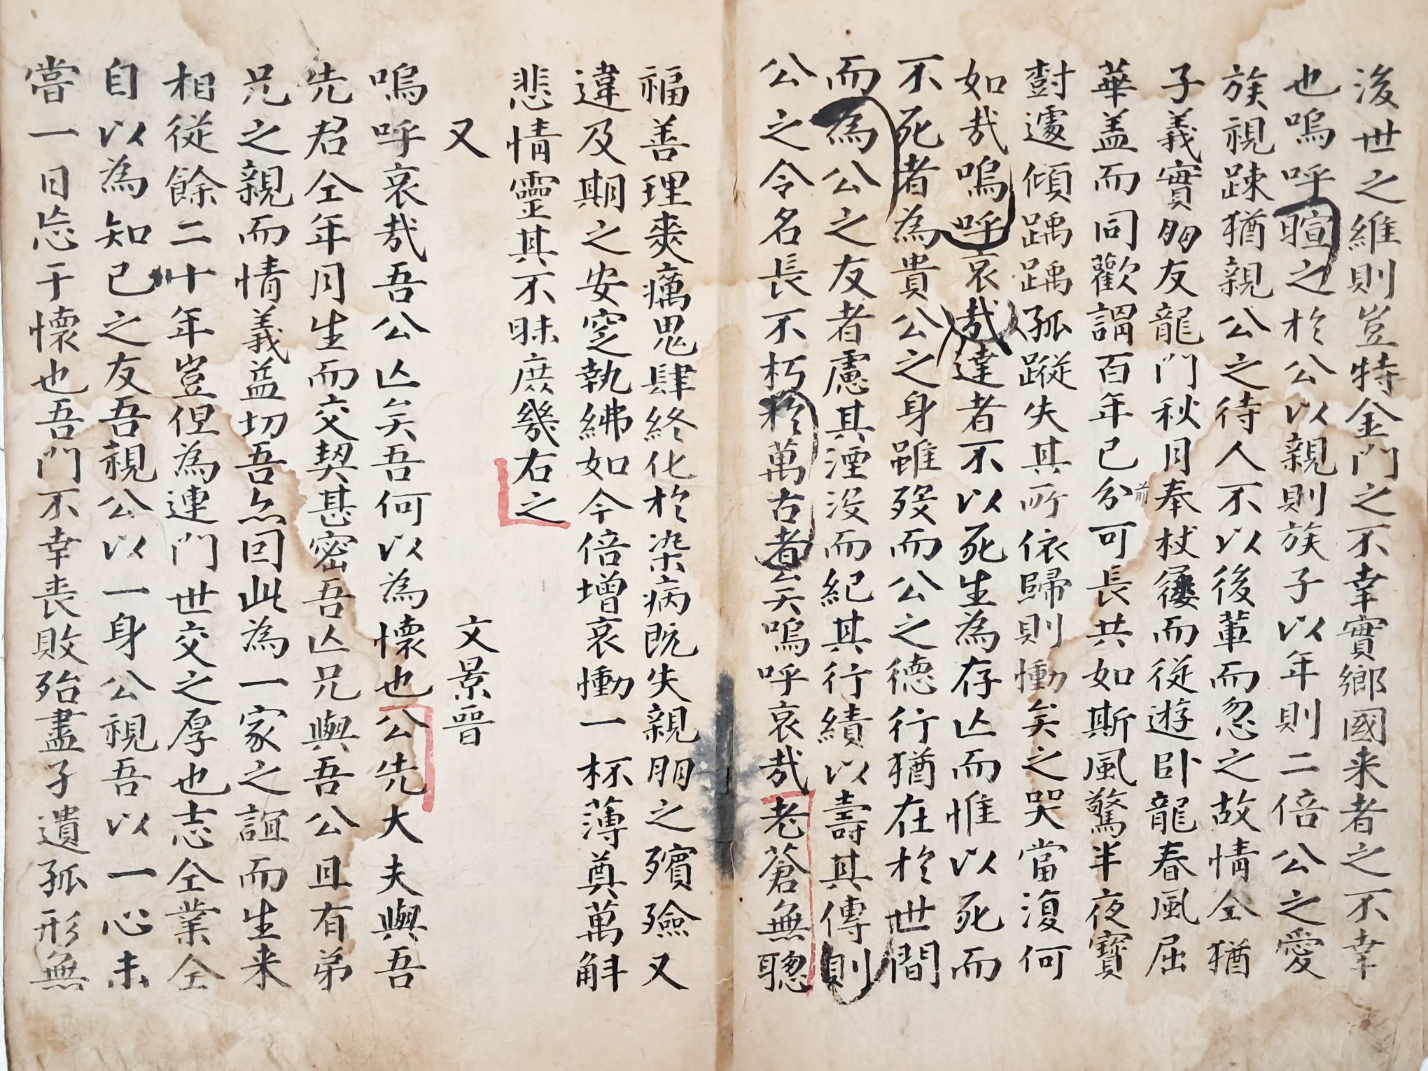 後世之維則豈特金門之不幸實鄉國来者之不幸
也嗚呼暄之扵公以親則族子以年則二倍公之愛
族視踈猶親公之待人不以後軰而忽之故情仝猶
子義實朋友龍門秋月奉杖屨而從遊卧龍春風屈
華盖而同歡謂百年已分前可長共如斯風驚半夜寶
樹遽傾踽踽孤蹤失其所依歸則慟矣之哭當復何
如㢤嗚呼哀㢤達者不以死生為存亡而惟以死而
不死者為貴公之身雖歿而公之德行猶在扵世間
而為公之友者慮其湮沒而紀其行績以壽其傳則
公之令名長不朽扵萬古者矣嗚呼哀㢤老蒼無聦
福善理爽癘鬼肆終化扵染病旣失親朋之殯殮又
違及期之安窆執紼如今倍增哀慟一杯薄奠萬斛
悲情靈其不昧庶幾右之
又 文景晋
嗚呼哀㢤吾公亡矣吾何以為懷也公先大夫與吾
先君仝年同生而交契甚密吾亡兄與吾公且有弟
兄之親而情義益切吾亦因此為一家之誼而生来
相從餘二十年豈但為連門世交之厚也志仝業仝
自以為知已之友吾視公以一身公視吾以一心未
嘗一日忘于懷也吾門不幸喪敗殆盡孑遺孤形無